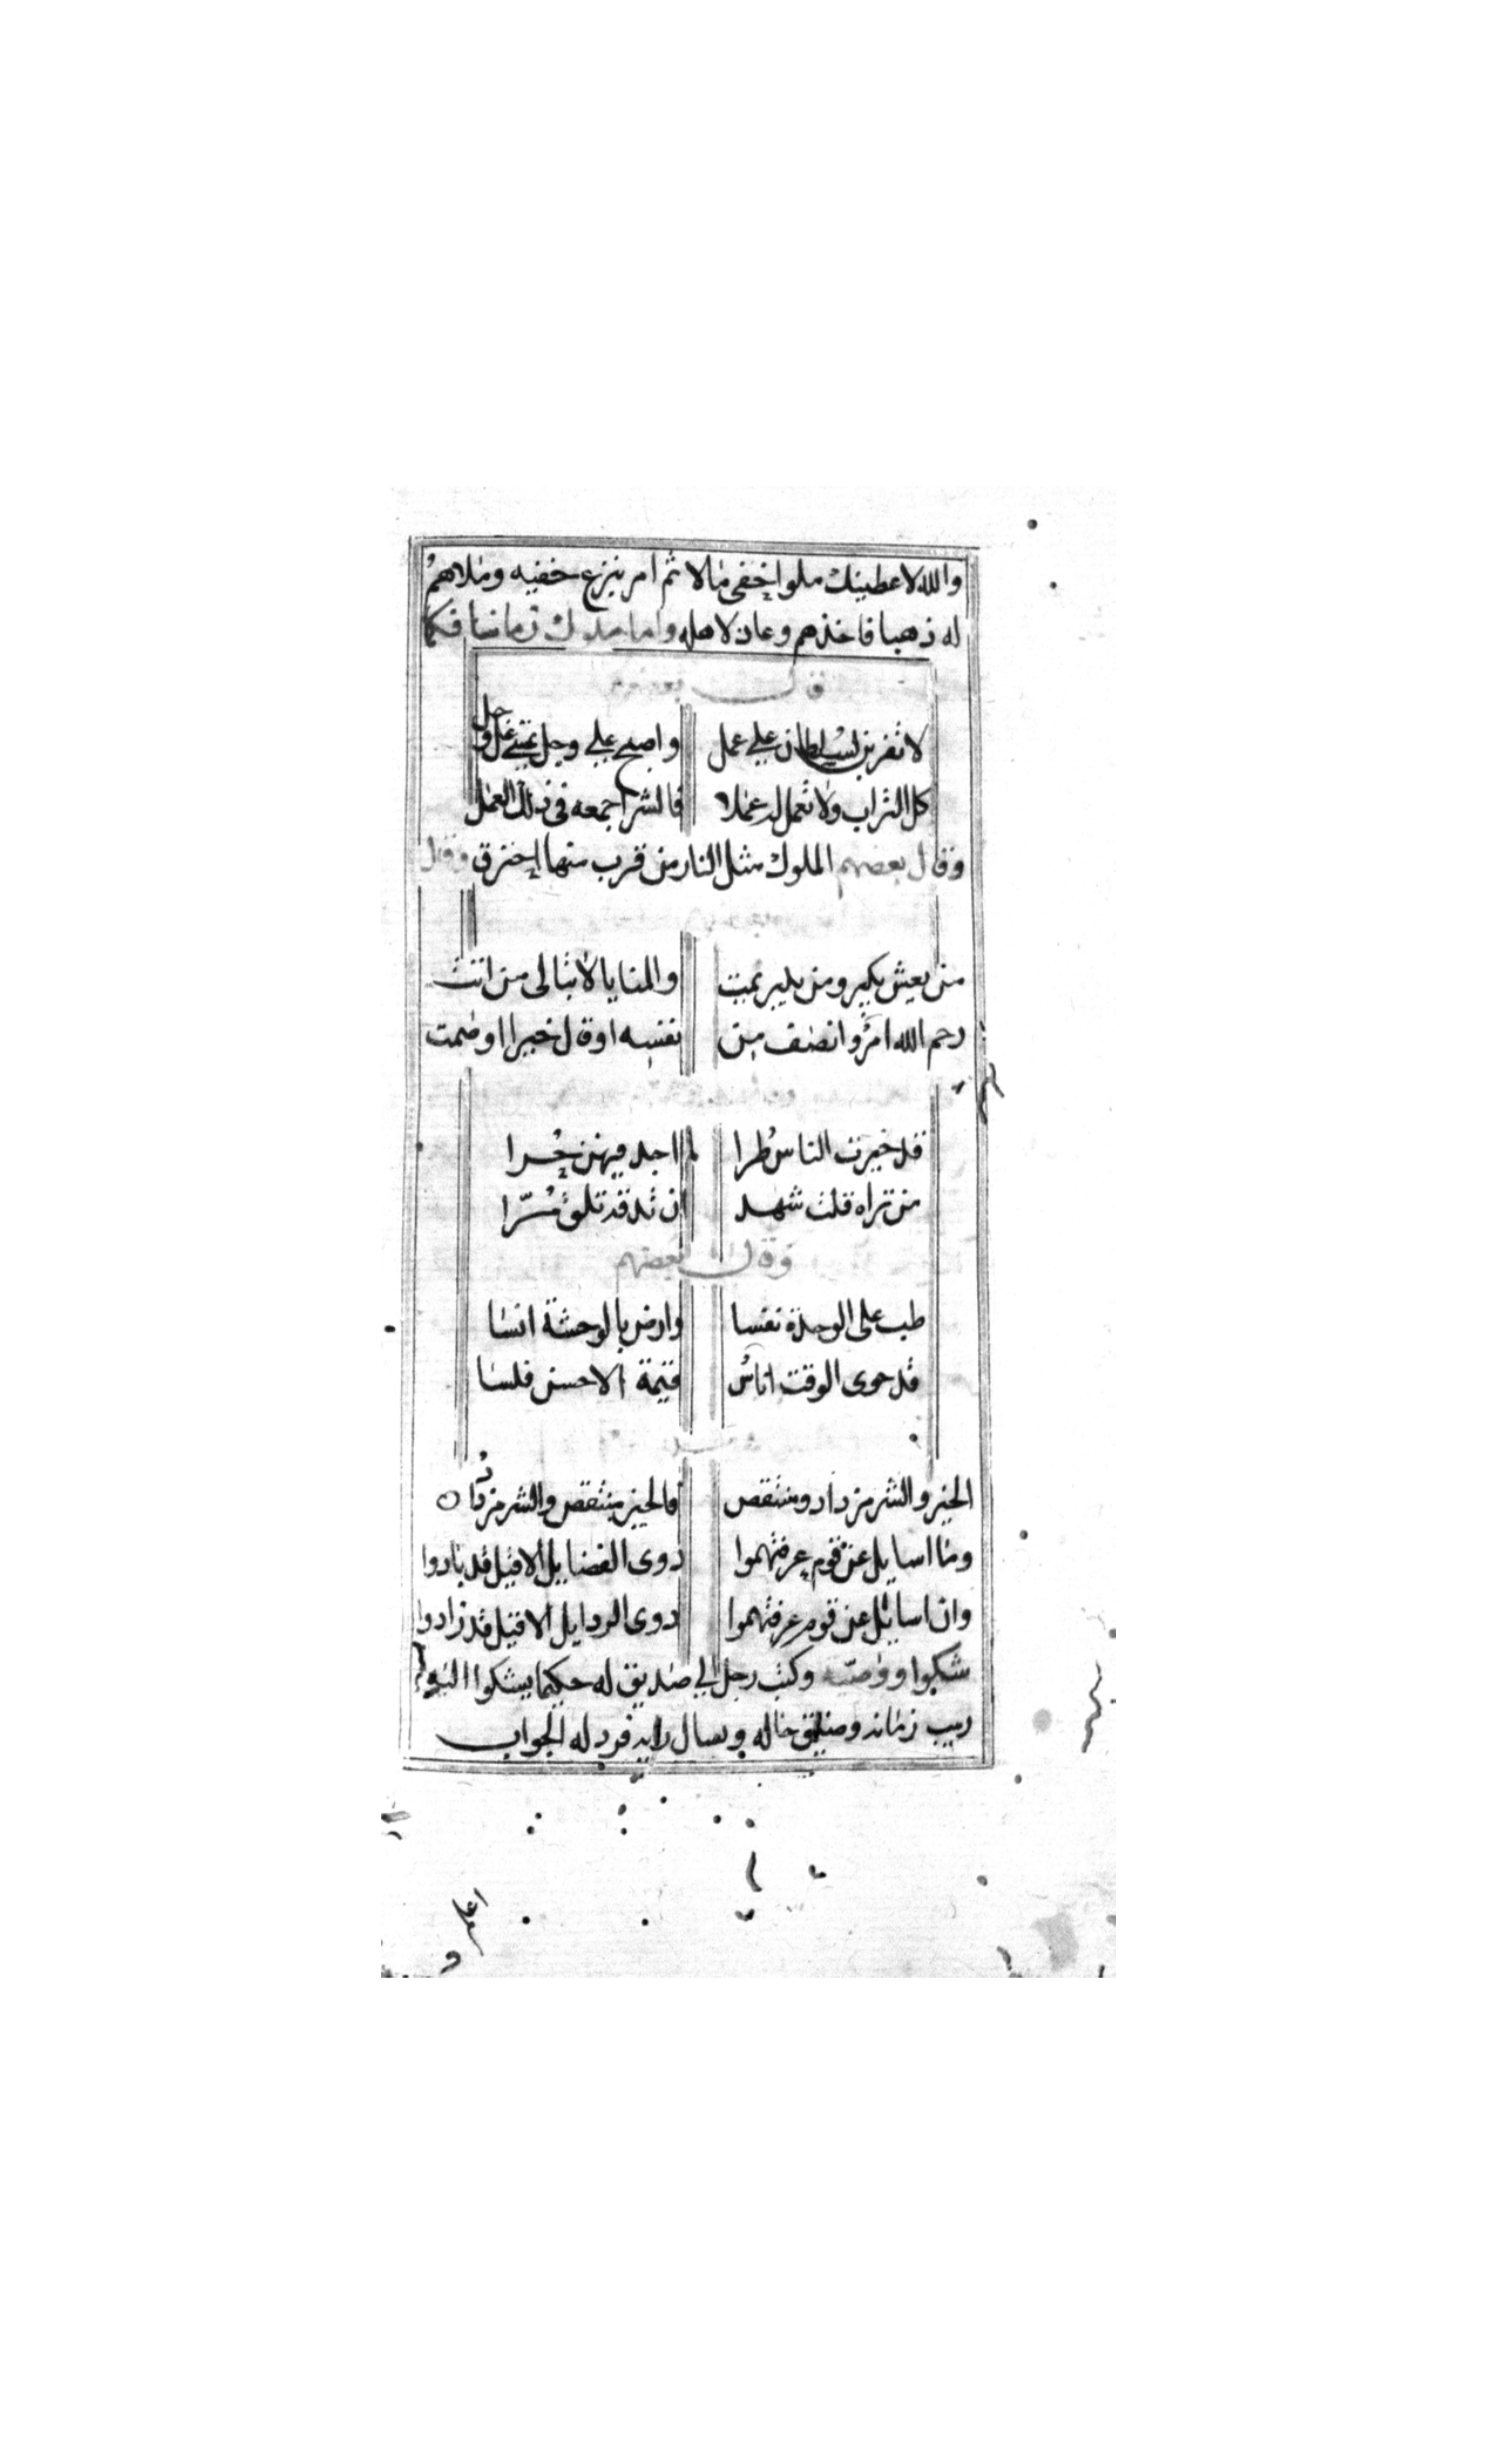 والله لاعطينك ملوا خفى مالا ثم امر بنزع خفيه وملاهم
له ذهبا فاخذهم وعاد لاهله واما ملوك زماننا فكما
قال بعضهم
لا تقربن لسلطان على عمل واصبح على وجل تمسى على وجل
كل التراب ولا تعمل له عملا فالشر اجمعه فى ذلك العمل
وقال بعضهم الملوك مثل النار من قرب منها احترق وقال
من يعش يكبر ومن يكبر يمت والمنايا لا تبالى من اتت
رحم الله امرؤا انصف من نفسه او قال خيرا او صمت
قد خبرت الناس طرا لم اجد فيهن حرا
من تراه قلت شهد ان تذقه تلق مرا
وقال بعضهم
طب على الوحدة نفسا وارض بالوحشة انسا
قد حوى الوقت اناس قيمة الاحسن فلسا
الخير والشر مزداد ومنتقص فالخير منتقص والشر مزداد
وما اسايل عن قوم عرفتهموا ذوى الفضايل الا قيل قد بادوا
وان اسائل عن قوم عرفتهموا ذوى الردايل الا قيل قد زادوا
شكوا ووصية وكتب رجل الى صديق له حكيما يشكوا اليه
ريب زمانه وضيق حاله ويسال رايه فرد له الجواب